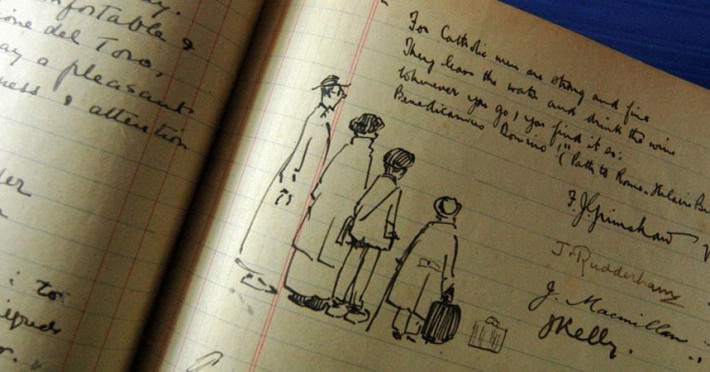 ay.
comfortable &
one del Toro,
ay a pleasant
ness & attention
: to
For Catholic men are strong and fine
They leave the water and drink the wine
Wherever you go, you find it so:
Benedicamus Domino! ("Path to Rome. Hilaire Be
F. J. Grimshaw
J. Rudderham
J. Macmillan "
J Kelly. "